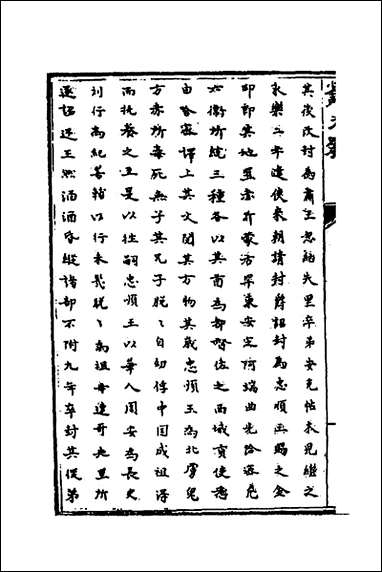 其後改封為肅王忽納失里卒弟安克帖木兒繼之
永樂二年遣使來朝請封爵詔封為忠順王賜之金
印即其地置赤斤蒙方罕東安定阿端曲先哈密
六衛所統三種各以其酋為都督佐之西域貢使
由哈密譯上其文聞其方物其歲忠順王為北虜
方赤所毒死無子其兄子脫脫自幼俘中国成祖
而托養之至是以往嗣忠順王以華人周安為長史
刘行為紀善輔以行未幾脫脫為祖母速哥失里所
遂詔还王然酒酒昏縱諸部不附九年卒封其從弟